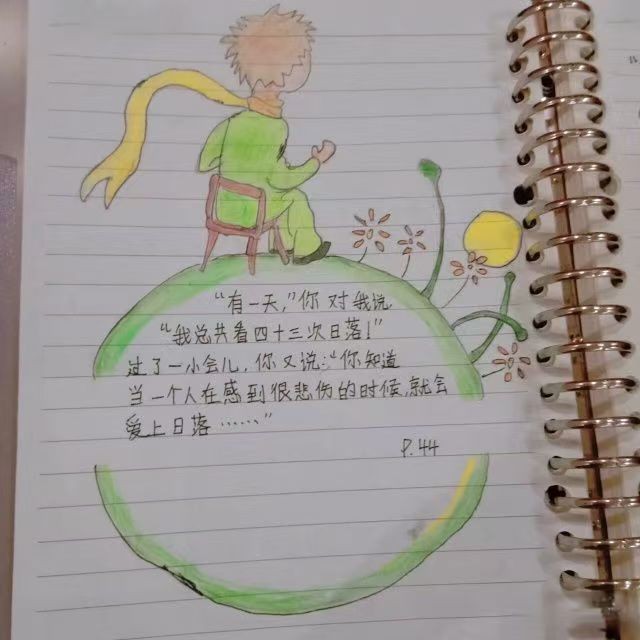 “有一天，”你对我说
“我总共看四十三次日落！”
过了一小会儿，你又说：“你知道
当一个人在感到很悲伤的时候，就会
爱上日落……”
P.44